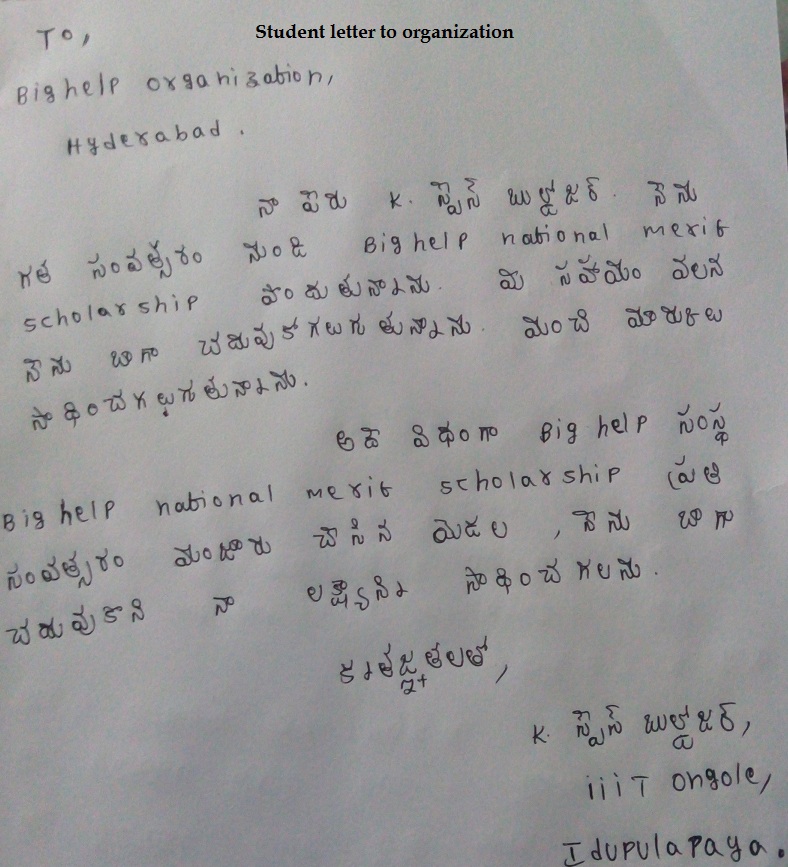 Student letter to organization
To,
Big help organization,
Hyderabad.
నా పేరు K. స్పౌన్ బుల్డోజర్. నేను
గత సంవత్సరం నుండి Big help national merit
scholarship పొందుతున్నాను. మీ సహాయం వలన
నేను బాగా చదువుకోగలుగుతున్నాను. మంచి మార్కులు
సాధించగల్గుతున్నాను.
అదే విధంగా Big help సంస్థ
Big help national merit scholarship ప్రతి
సంవత్సరం మంజూరు చేసిన యెడల , నేను బాగా
చదువుకొని నా లక్ష్యాన్ని సాధించగలను.
కృతజ్ఞతలతో,
K. బుల్డోజర్,
iiiT ongole,
Idupulapaya.